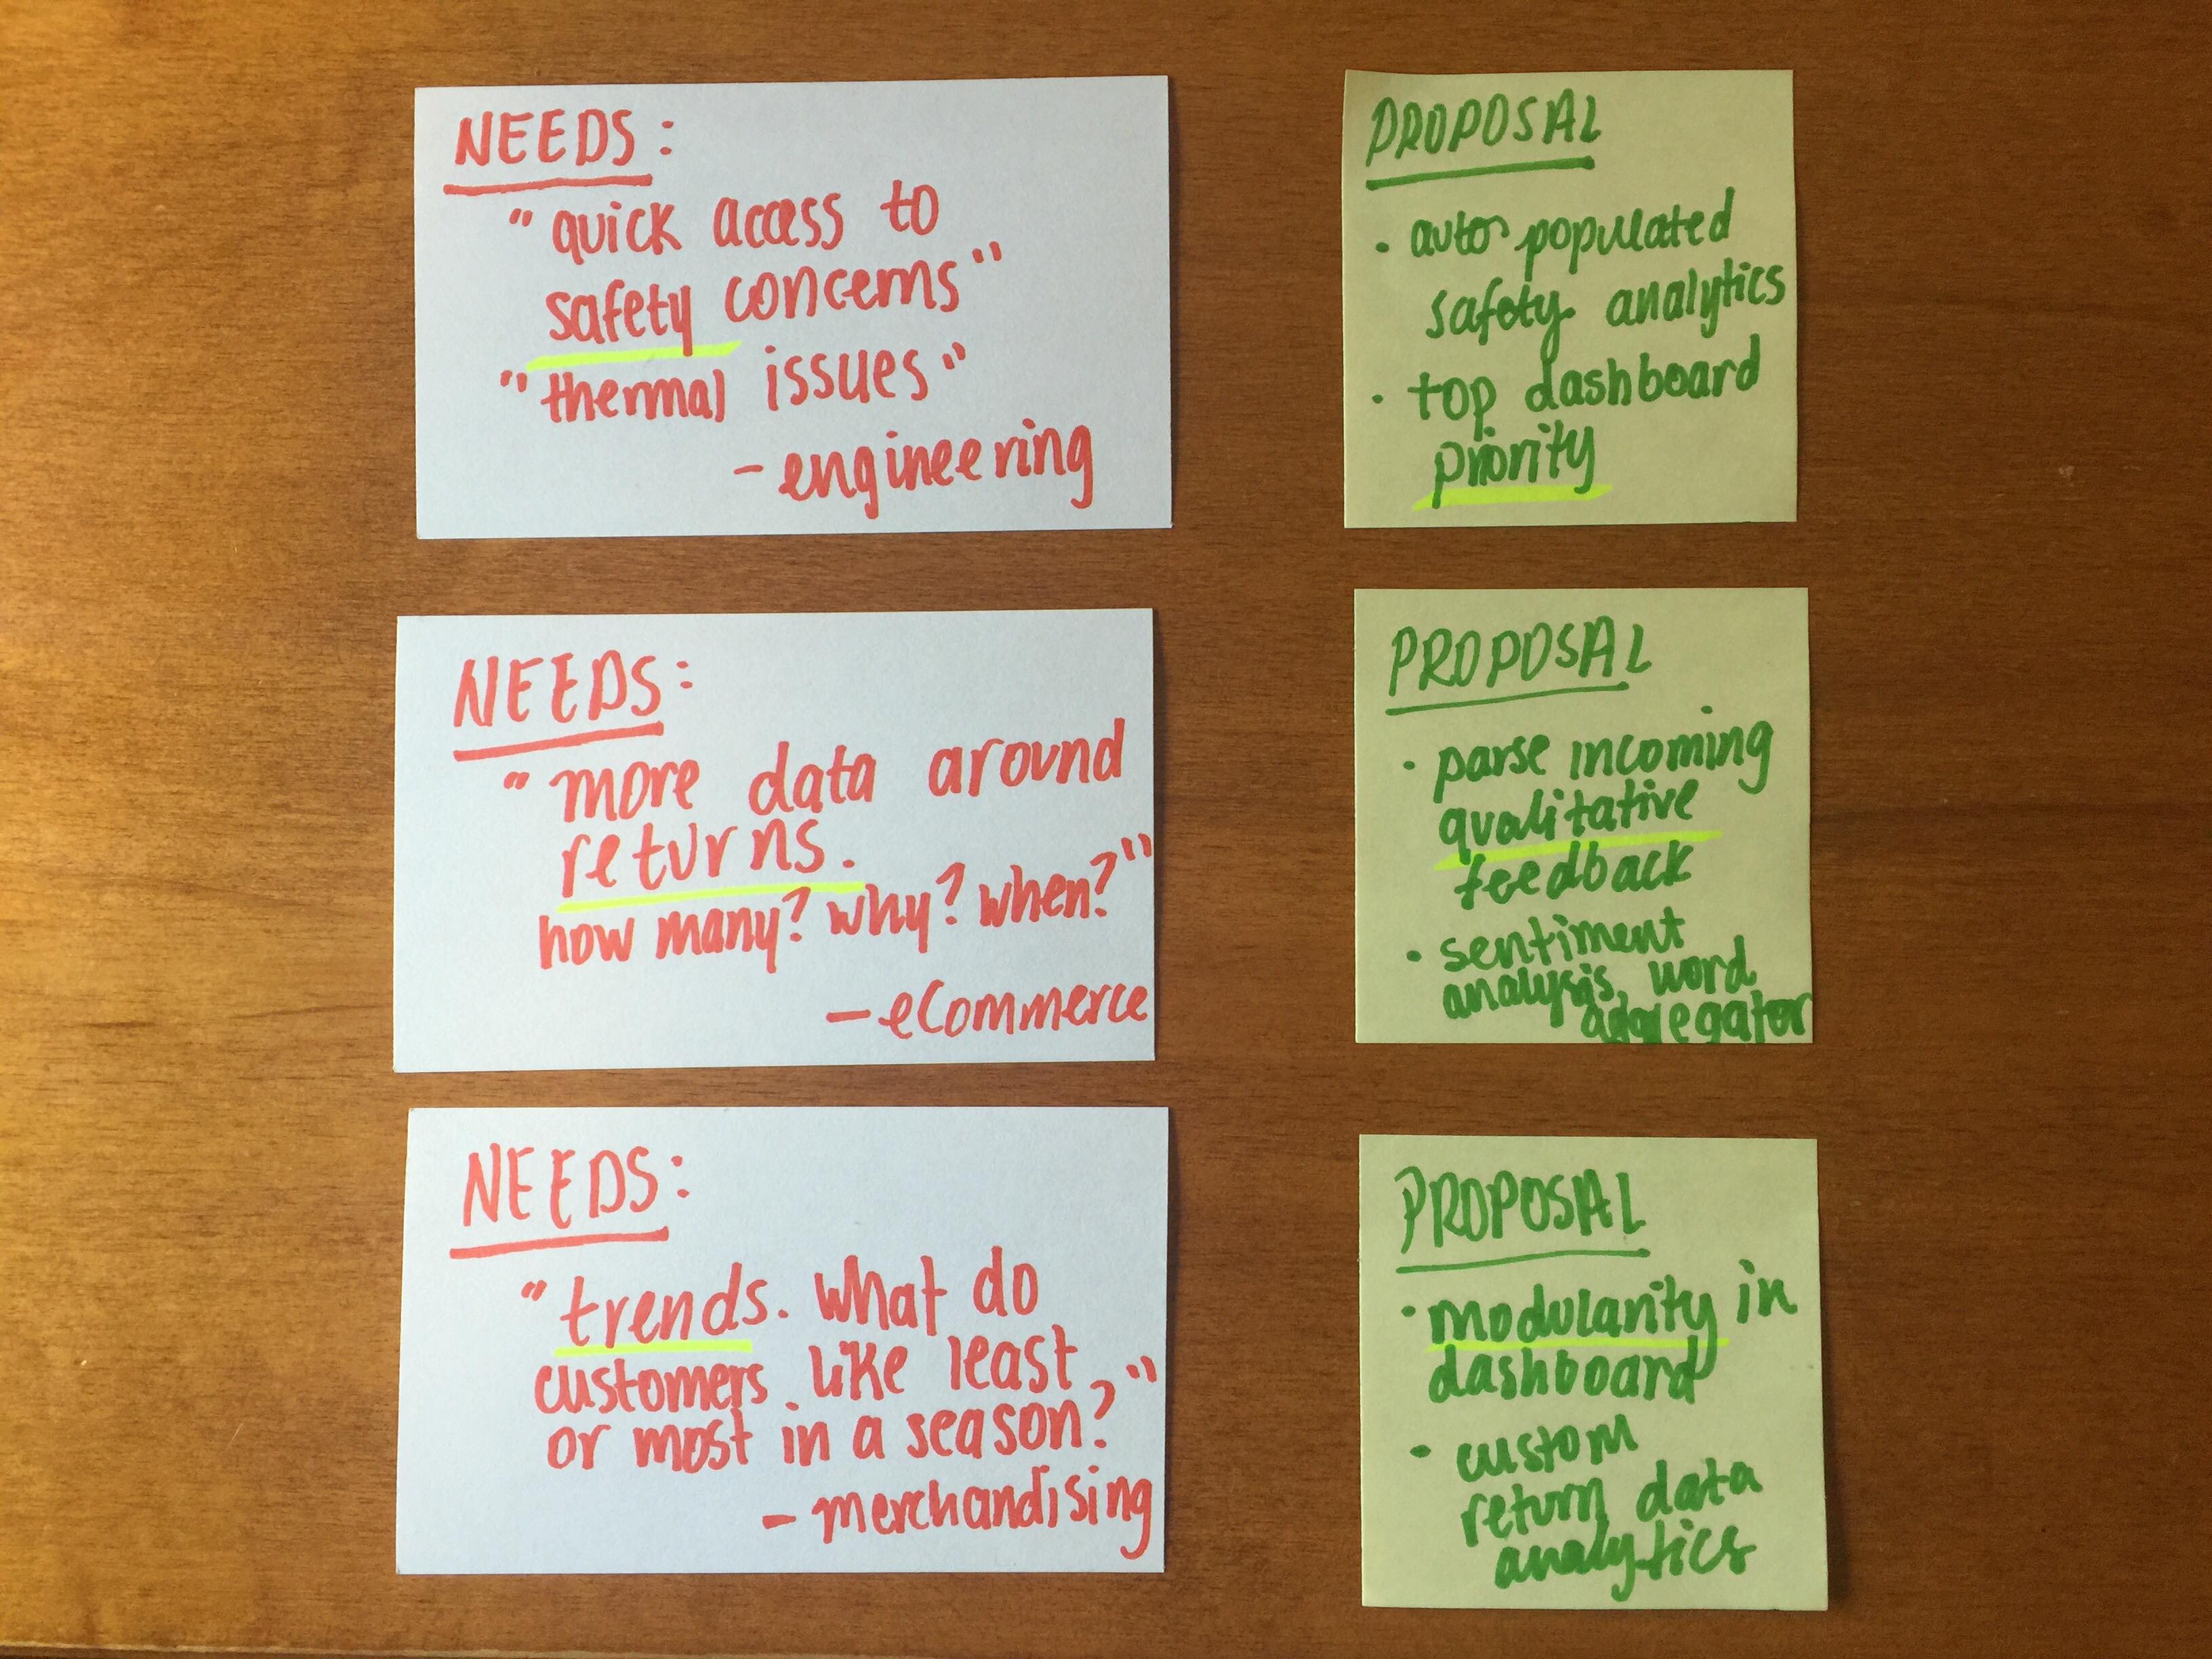 NEEDS:
"quick access to
safety concerns"
"thermal issues"
- engineering
PROPOSAL
• auto populated
safety analytics
• top dashboard
priority
NEEDS:
"more data around
returns.
how many? why? when?"
- eCommerce
PROPOSAL
• parse incoming
qualitative
feedback
• sentiment
analysis, word
aggregator
NEEDS:
"trends. What do
customers like least
or most in a season?"
- merchandising
PROPOSAL
• modularity in
dashboard
• custom
return data
analytics